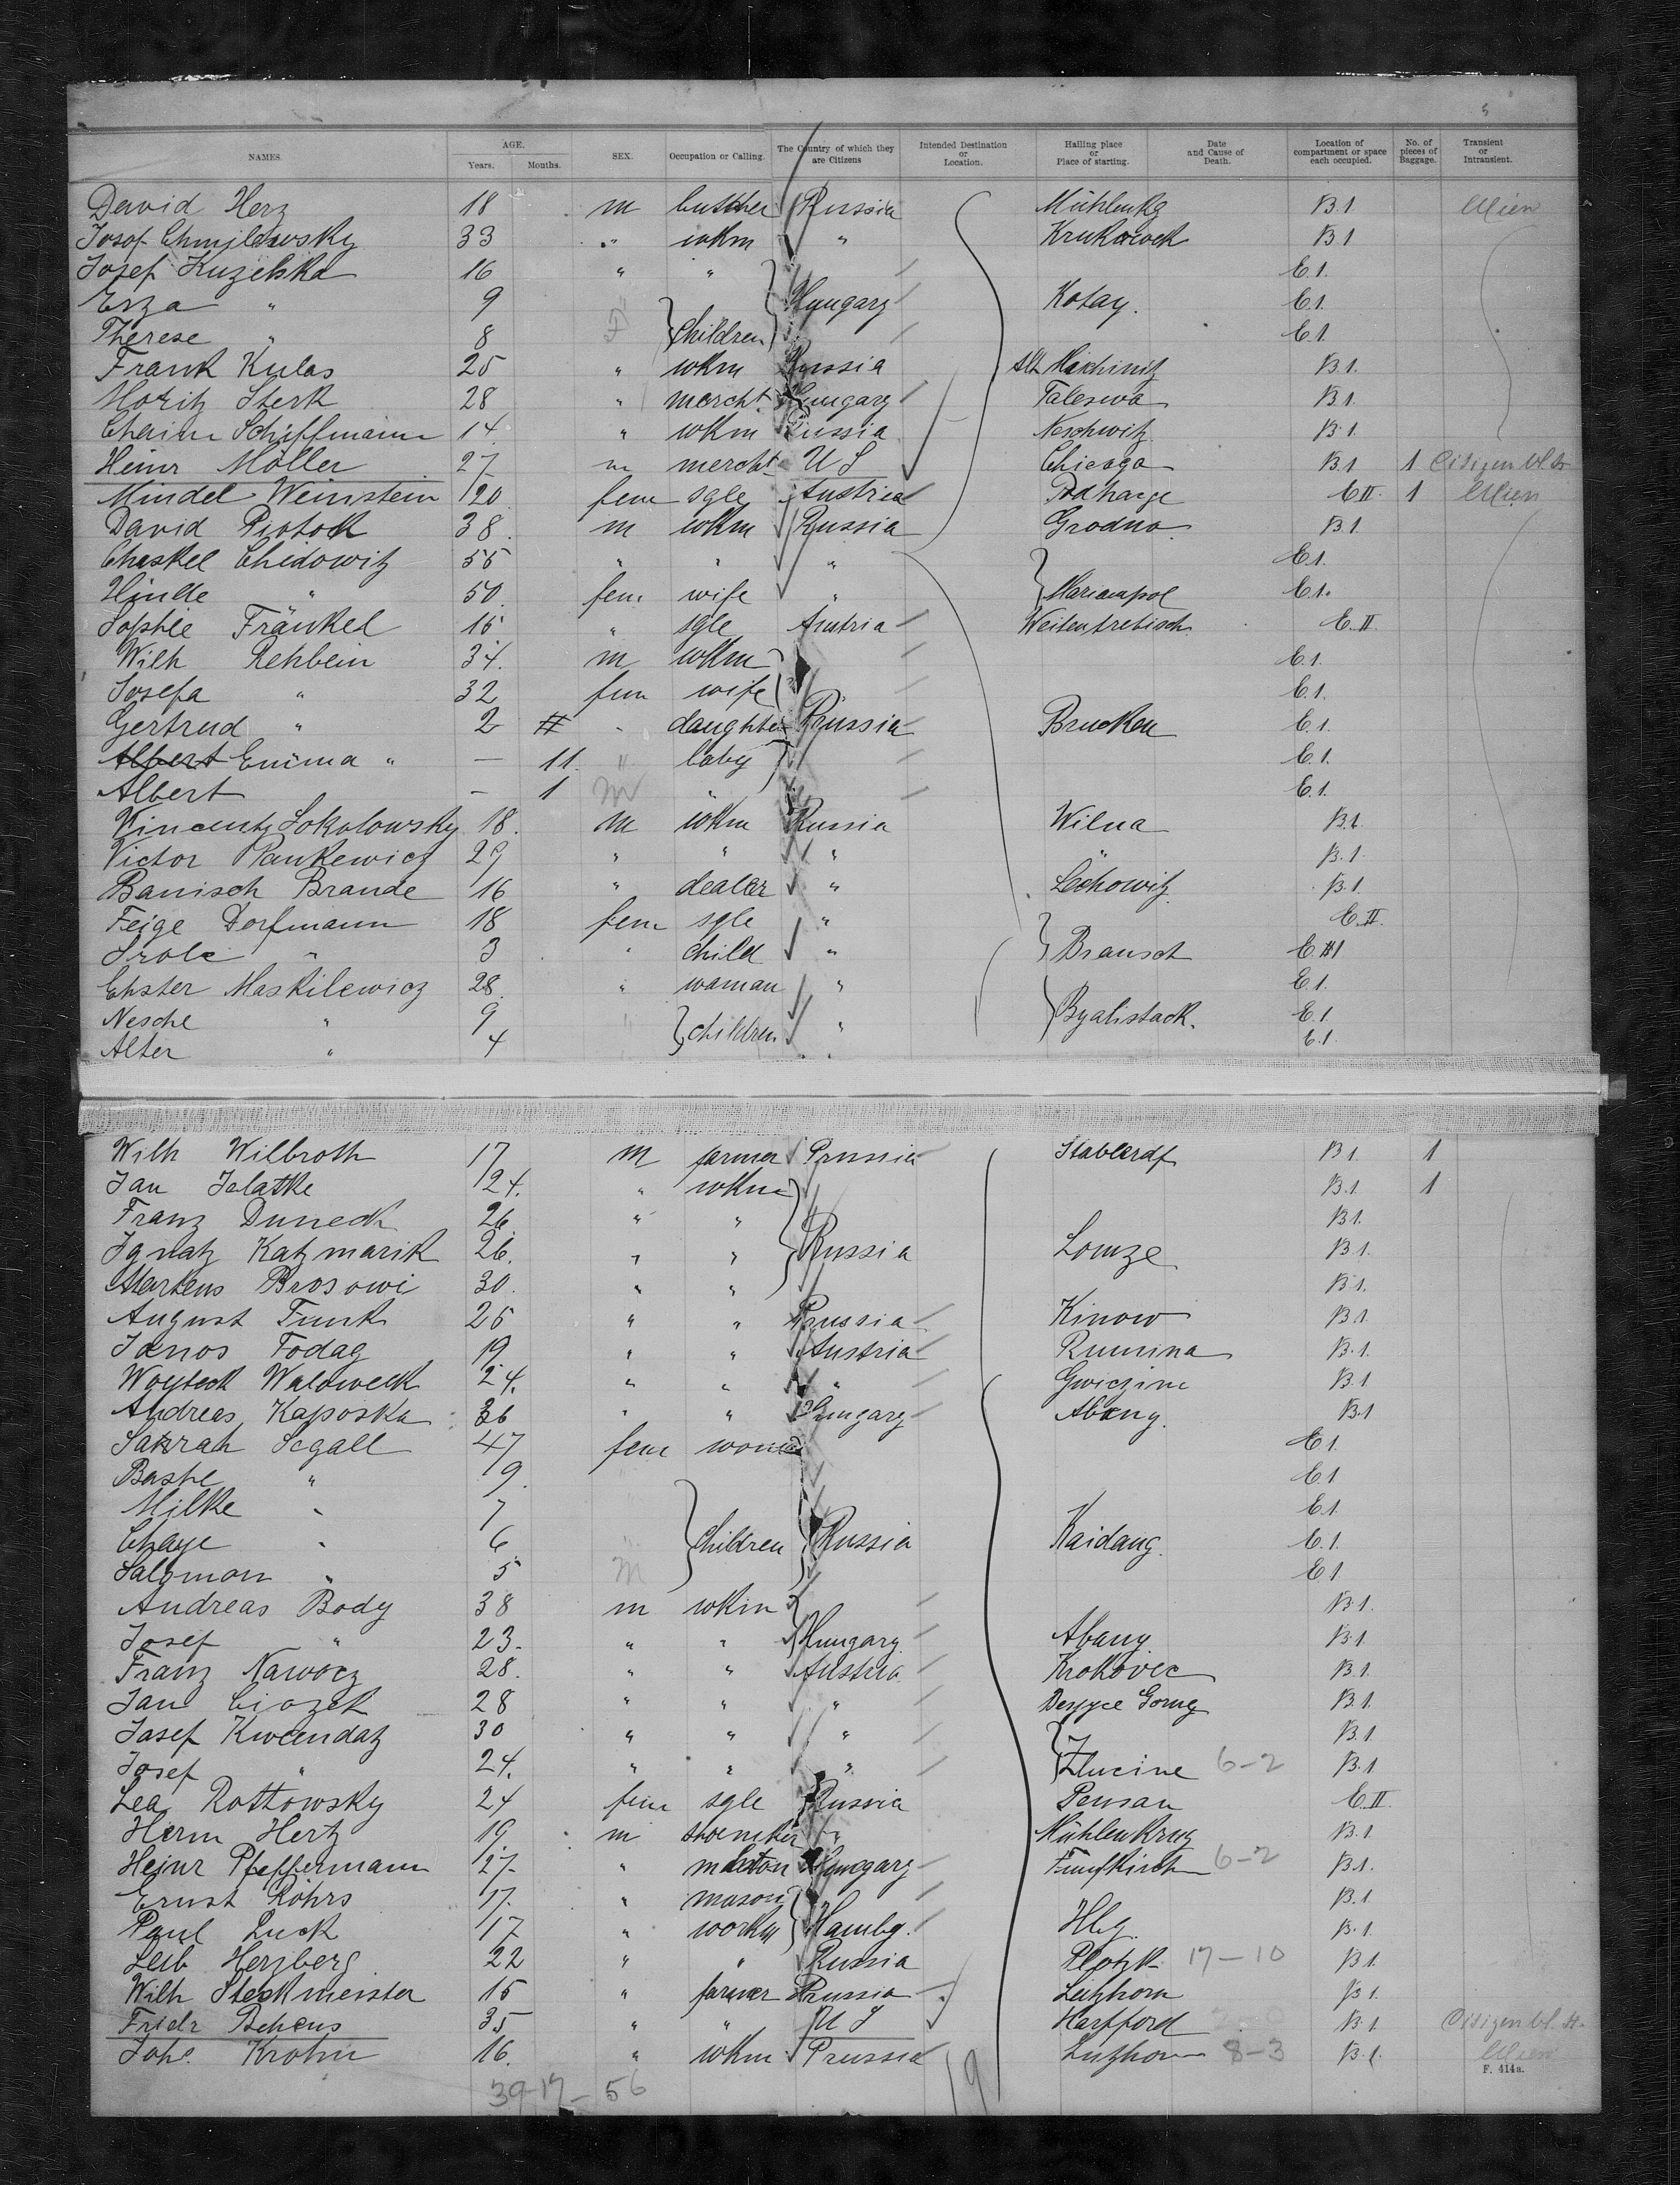 5
NAMES. AGE. Years. Months. SEX. Occupation or Calling. The Country of which they are Citizens Intended Destination or Location. Hailing place or Place of starting. Date and Cause of Death. Location of compartment or space each occupied. No. of pieces of Baggage. Transient or Intransient.
David Herz 18 m Russia B.1 Alien
Josef Chmilewsky 33 " wkm " B1
Josef 16 " " E.1.
Erza " 9 Hungary Kotay. E.1.
Therese " 8 F Children E.1.
Frank Kulas 25 " wkm Russia B1.
Moritz Sterk 28 " mercht Hungary Taleswa B1.
Chaim Schiffmann 14 " wkm Russia Neschwitz B.1.
Heinr Möller 27 m mercht U S Chicago B.1 1 Citizen U. St
Mindel Weinstein 20 fem sgle Austria E II. 1 Alien
David Piotok 38. m wkm Russia Grodno B.1
Cheskel Chidowitz 55 " " " E.1.
Hinde " 50 fem wife " Mariampol E.1.
Sophie Fränkel 15 " sgle Austria E.II.
Wilh Rehbein 34. m wkm E.1.
Josefa " 32 fem wife E.1.
Gertrud " 2 " daughter Prussia Brucken E.1.
Albert Emma " — 11. " baby E.1.
Albert — 1 M " E.1.
Vincentz Sokolowsky 18. m wkm Russia Wilna B.1.
Victor Pankewicz 29 " " " " B.1.
Banisch Brande 16 " dealer " Lechowitz B.1.
Feige Dorfmann 18 fem sgle " E.II.
Srole " 3 " child " Bransct E.1
Ehster Maskilewicz 28. " woman " E.1.
Nesche " 9 children " Byalistack. E.1
Alter " 4 E.1.
Wilh Wilbroth 17 m farmer Prussia B1. 1
Jan Jelatke 24. " wkm B.1. 1
Franz Duneck 26 " " B1.
Ignatz Katzmarik 26. " " Russia Lomze B1.
Martens Brosowi 30. " " B.1.
August Funk 25 " " Prussia Kinow B.1
Janos Fodag 19 " " Austria Rumina B.1.
Woyteck Waldweck 24. " " " B.1
Andreas Kaposka 36 " " Hungary Abany. B.1
Sarrah Segall 47 fem woman E1.
Bashe " 9. E1
Milke " 7 E.1.
Chaye " 6 Children Russia Kaidang. E.1.
Salomon " 5 M E1
Andreas Body 38 m wkm B.1.
Josef " 23. " " Hungary. Abany B.1
Franz Nawocz 28. " " Austria Krokovec B.1.
Jan Ciozek 28 " " " B.1.
Josef Kwcendaz 30 " " " B.1.
Josef " 24. " " " Zlucine 6-2 B.1
Lea Rottowsky 24 fem sgle Russia Pensan E.II.
Herm Hertz 19. m " Mühlenkrug B.1.
Heinr Pfeffermann 27. " Hungary Funfkirch 6-2 B.1.
Ernst Röhrs 17. " mason B.1
Paul Luck 17 " workm Hambg. Hbg. B.1.
Leib Herzberg 22 " " Russia Plotzk 17-10 B.1.
Wilh Steckmeister 15 " farmer Prussia Lutzhorn B.1.
Friedr Behens 35 " " U S Hartford B.1 Citizen U. St.
Johs. Krohn 16. " wkm Prussia Lutzhorn 8-3 B.1. Alien
F. 414a.
39-17-56 19